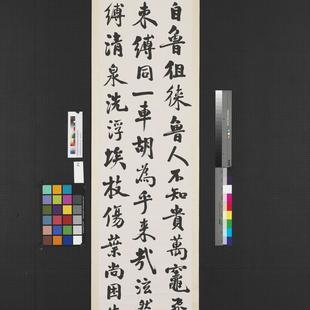 自魯徂徠魯人不知貴萬竈
束縛同一車胡為乎來哉泫然
縛清泉洗浮埃枝傷葉尚困